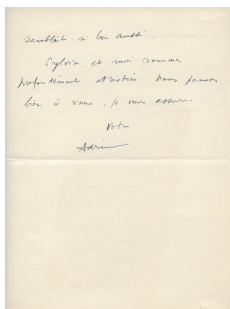 semblait si bon aussi.
Sylvia et moi sommes
profondément attristés. Nous pensons
bien à vous, je vous assure.
Votre
Adrien